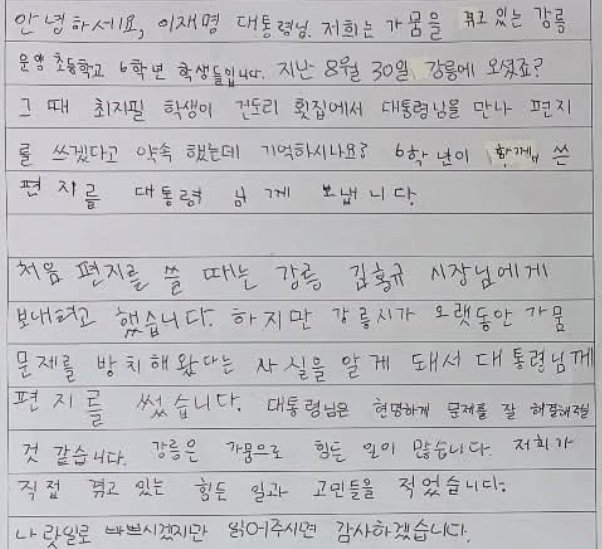 안녕하세요, 이재명 대통령님. 저희는 가뭄을 겪고 있는 강릉
운양초등학교 6학년 학생들입니다. 지난 8월 30일 강릉에 오셨죠?
그 때 최지필 학생이 건도리 횟집에서 대통령님을 만나 편지
를 쓰겠다고 약속 했는데 기억하시나요? 6학년이 함께 쓴
편지를 대통령 님께 보냅니다.
처음 편지를 쓸 때는 강릉 김홍규 시장님에게
보내려고 했습니다. 하지만 강릉시가 오랫동안 가뭄
문제를 방치해왔다는 사실을 알게 돼서 대통령님께
편지를 썼습니다. 대통령님은 현명하게 문제를 잘 해결해주실
것 같습니다. 강릉은 가뭄으로 힘든 일이 많습니다. 저희가
직접 겪고 있는 힘든 일과 고민들을 적었습니다.
나랏일로 바쁘시겠지만 읽어주시면 감사하겠습니다.